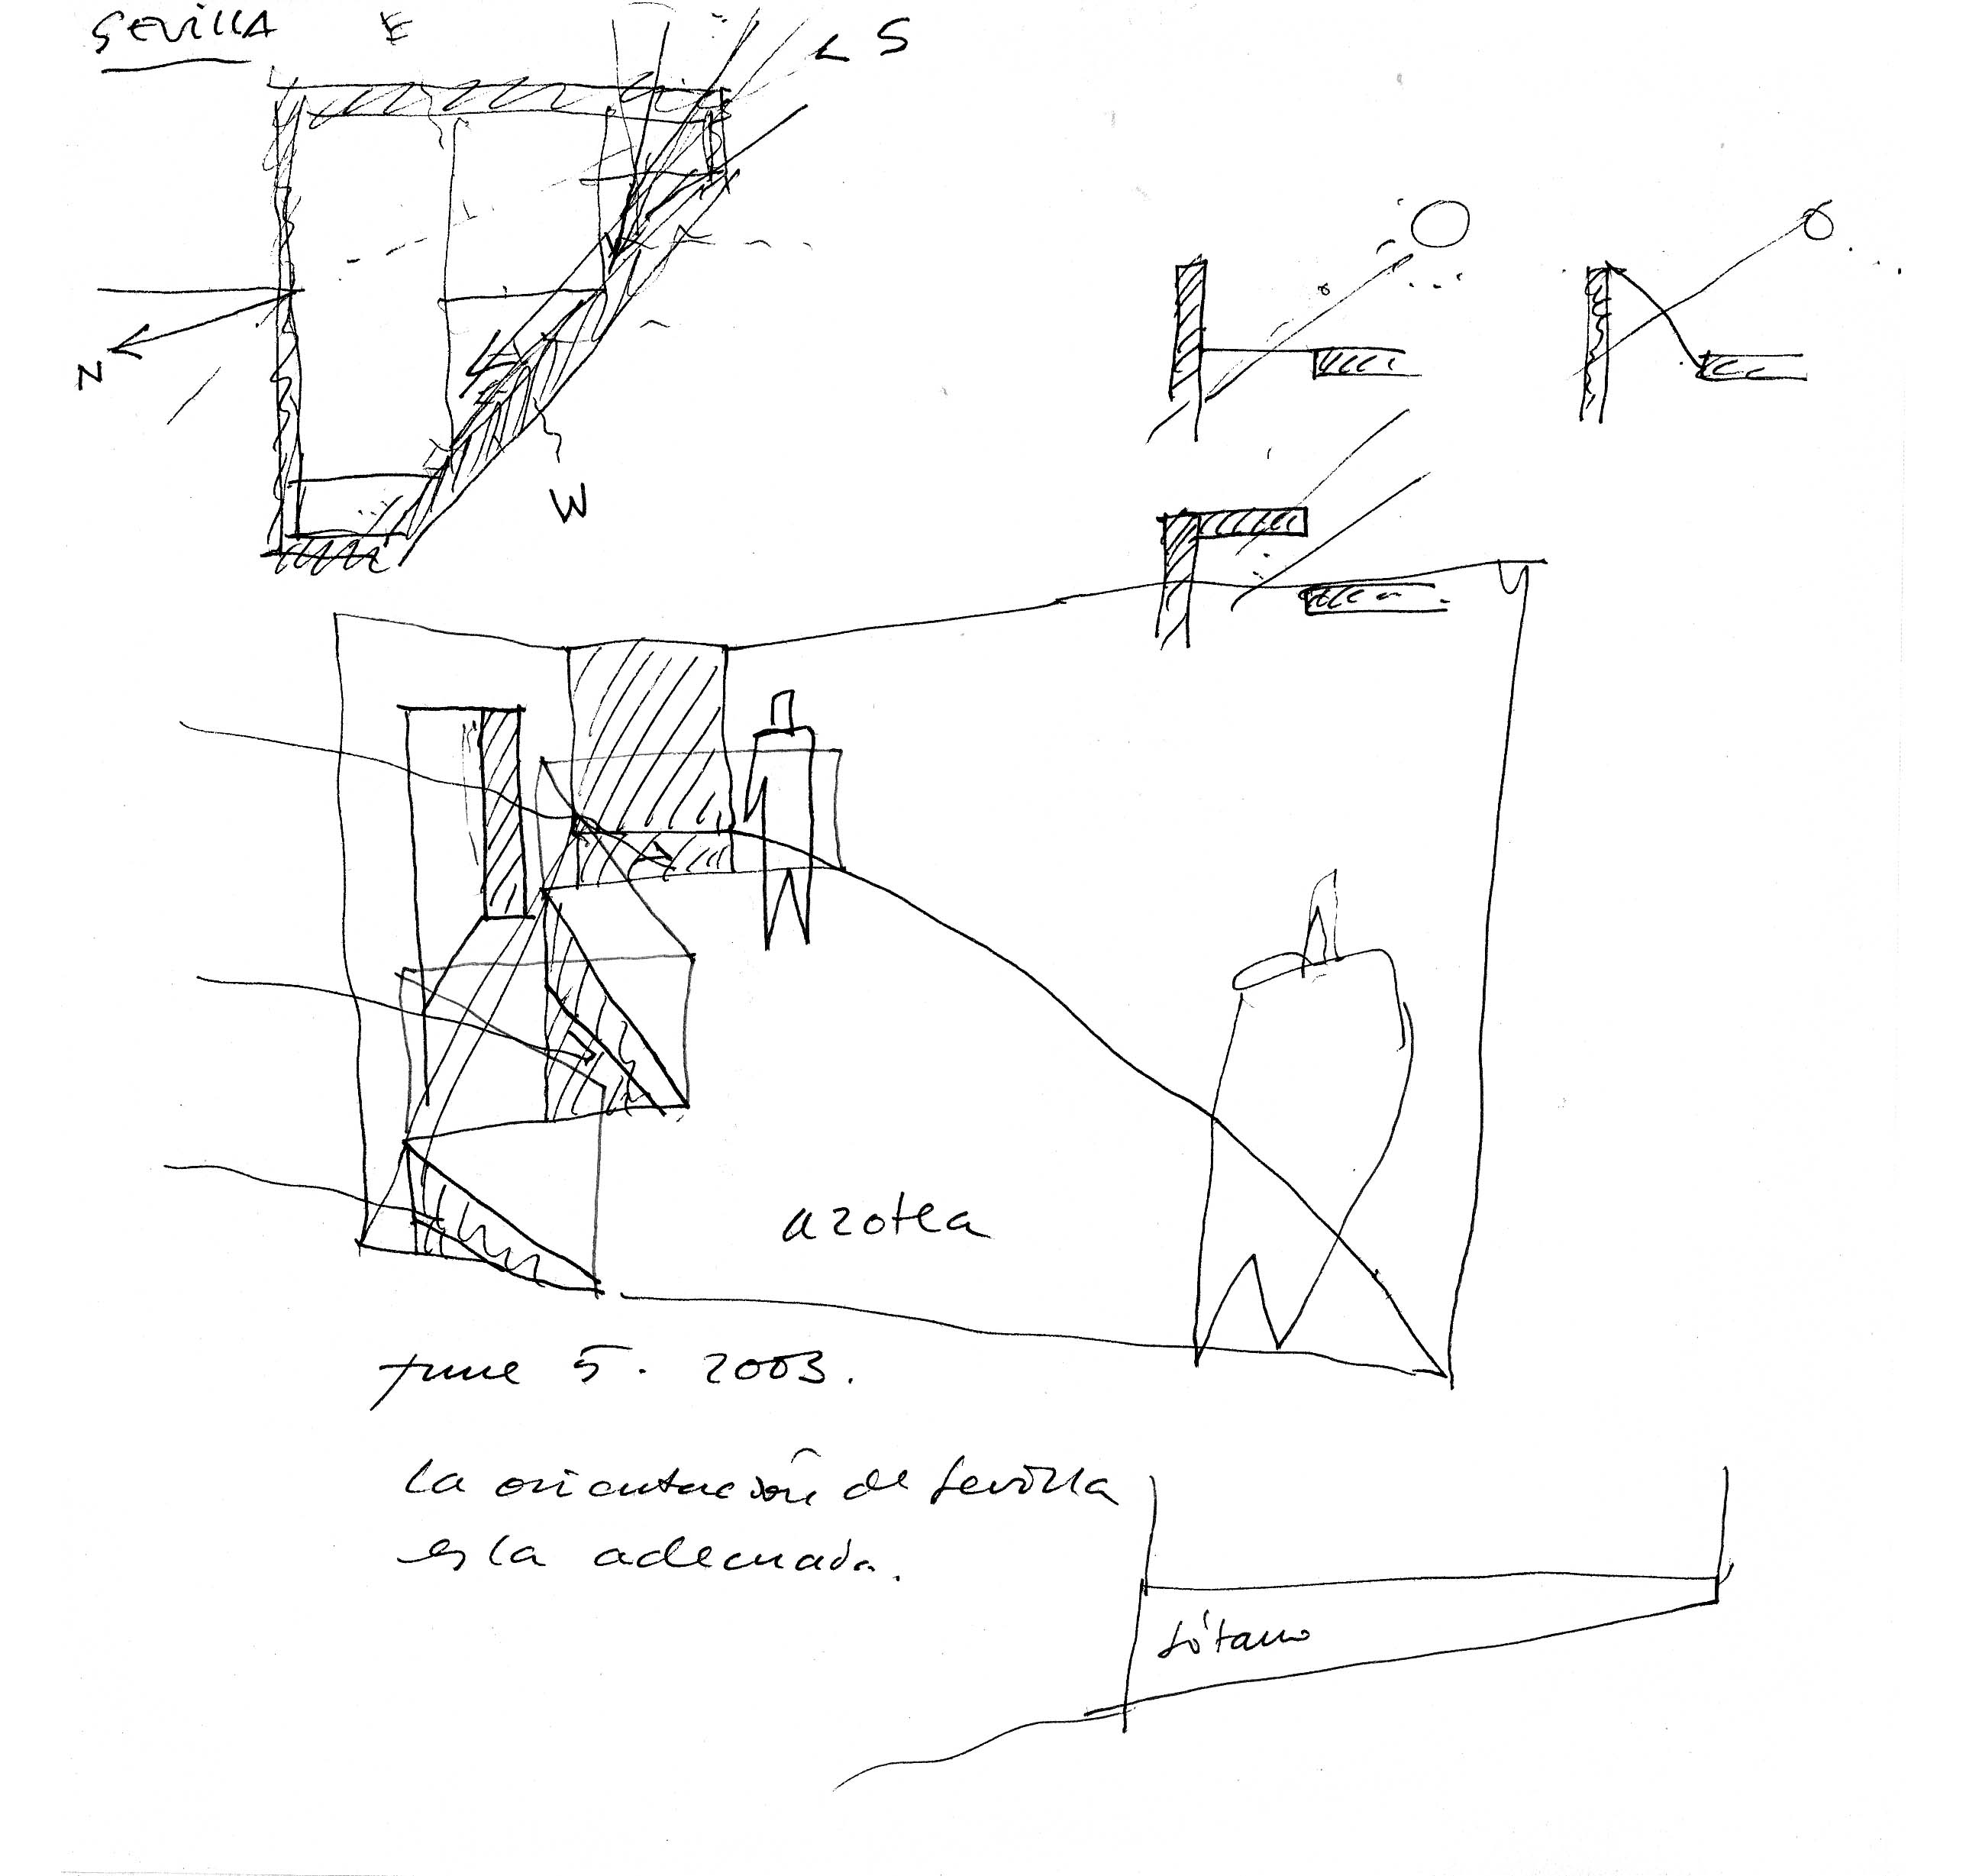 SEVILLA
E
S
N
W
azotea
June 5. 2003.
La orientación de Sevilla
es la adecuada.
Sótano